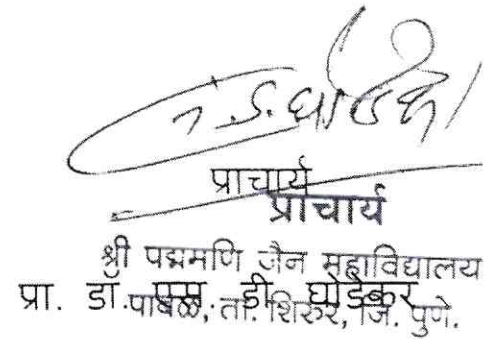 प्राचार्य
प्राचार्य
श्री पद्ममणि जैन महाविद्यालय
प्रा. डॉ. एस. डी. घोडेकर
पाबळ, ता. शिरुर, जि. पुणे.